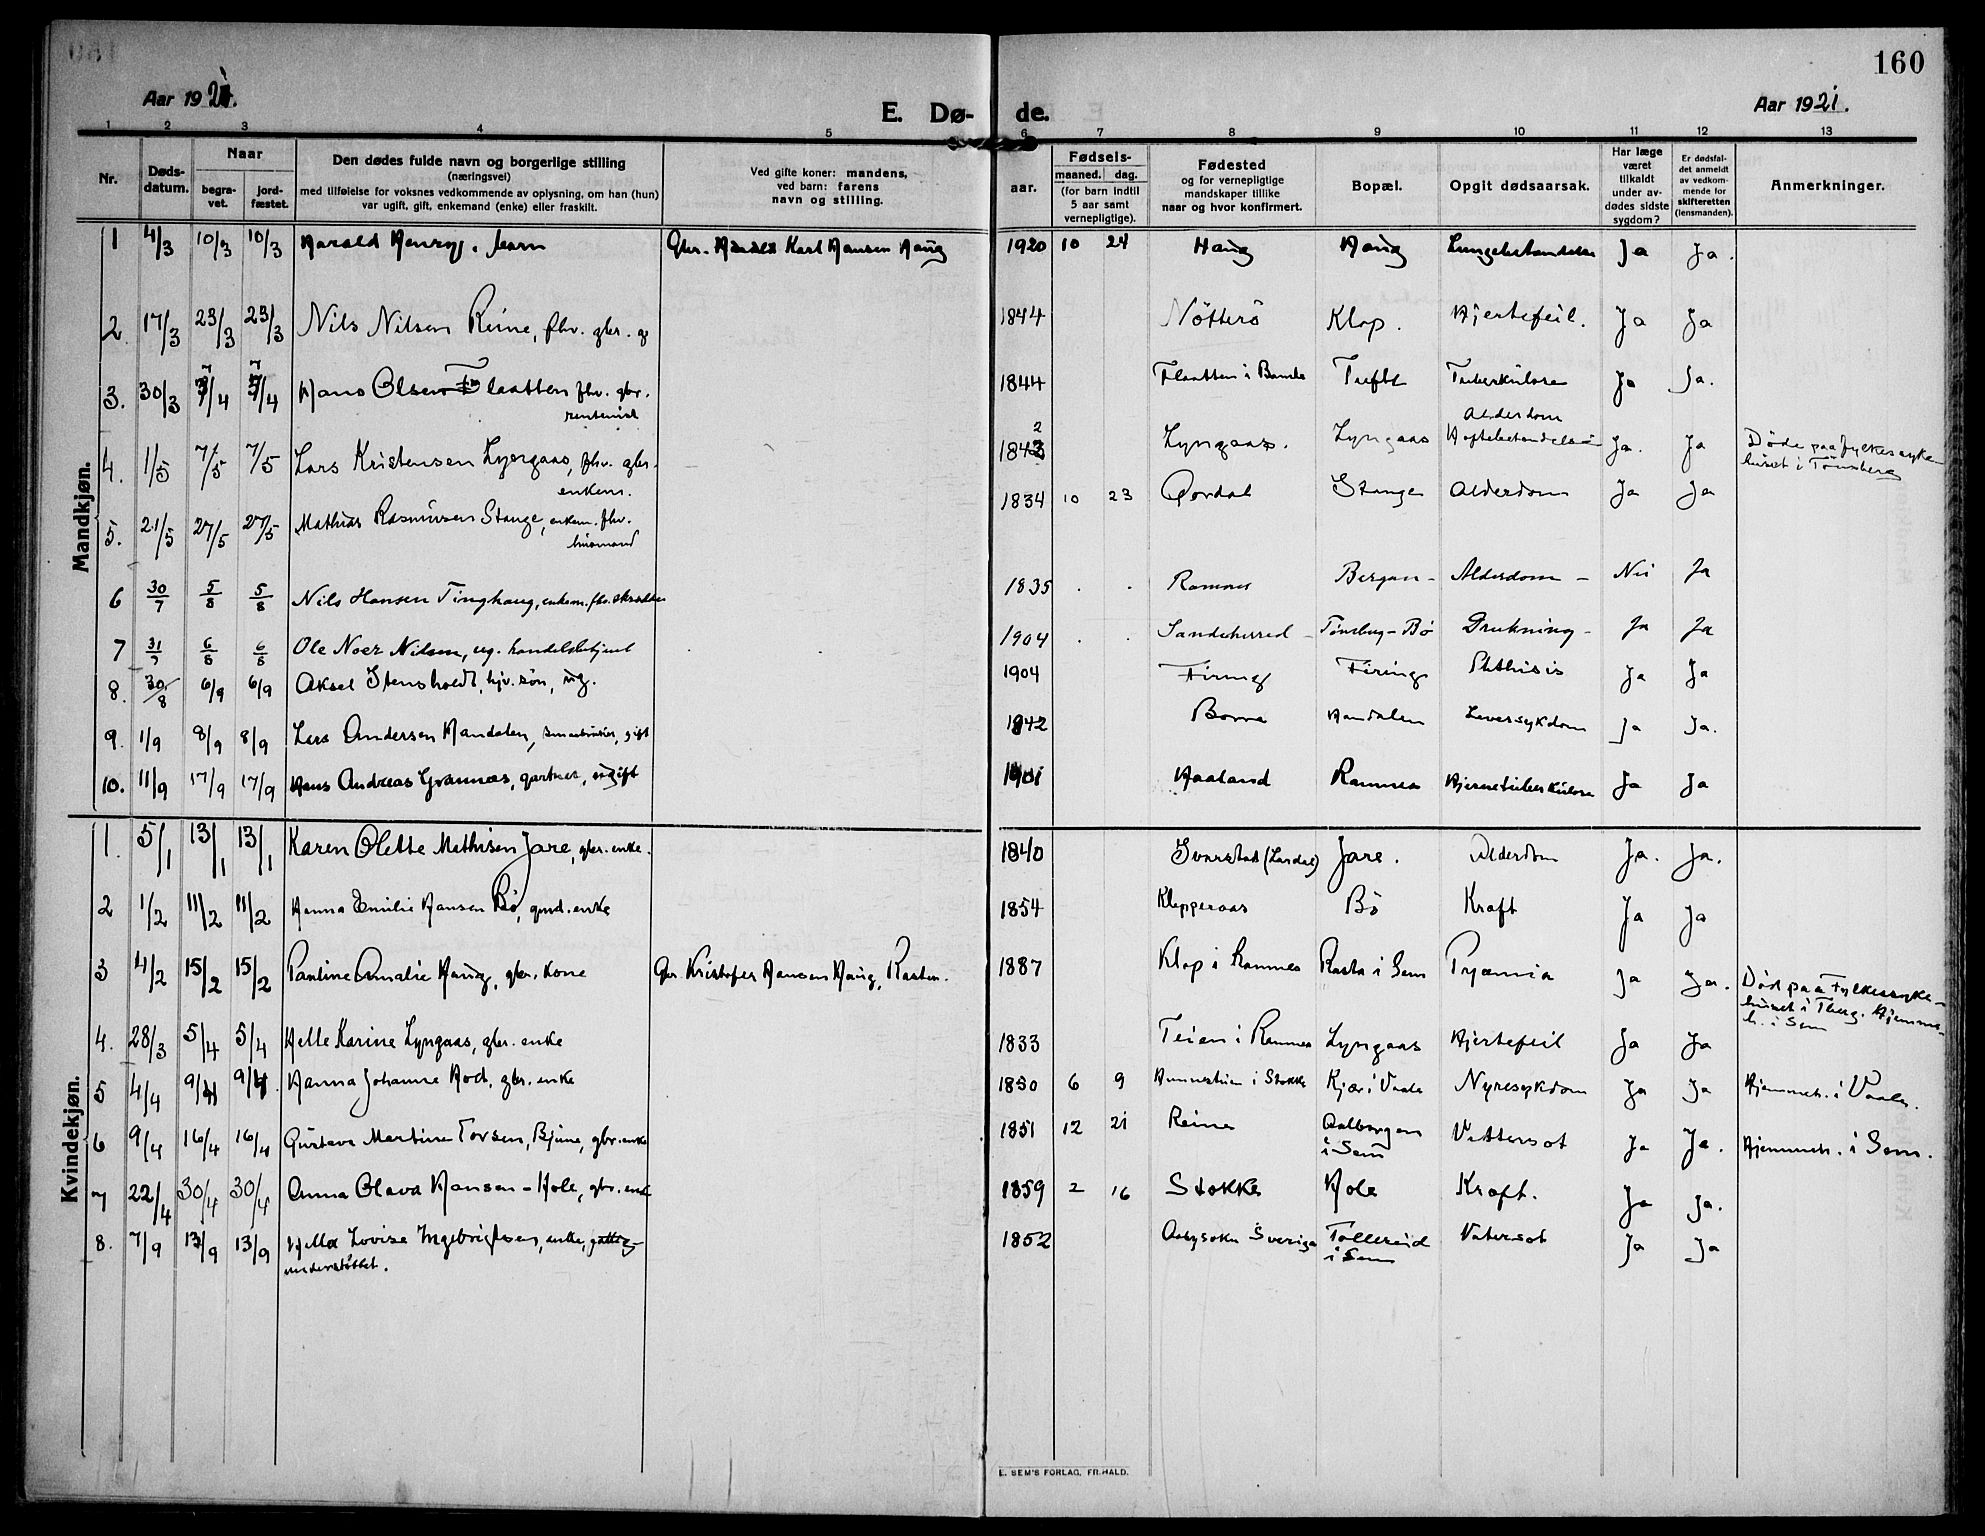 160
Aar 1921.
E. Dø-
de.
Aar 1921.
1 2 3 4 5 6 7 8 9 10 11 12 13
Nr.
Døds-
datum.
Naar
begra-
vet.
jord-
fæstet.
Den dødes fulde navn og borgerlige stilling
(næringsvei)
med tilføielse for voksnes vedkommende av oplysning, om han (hun)
var ugift, gift, enkemand (enke) eller fraskilt.
Ved gifte koner: mandens,
ved barn: farens
navn og stilling.
aar.
Fødsels-
maaned. dag.
(for barn indtil
5 aar samt
vernepligtige).
Fødested
og for vernepligtige
mandskaper tillike
naar og hvor konfirmert.
Bopæl.
Opgit dødsaarsak.
Har læge
været
tilkaldt
under av-
dødes sidste
sygdom?
Er dødsfal-
det anmeldt
av vedkom-
mende for
skifteretten
(lensmanden).
Anmerkninger.
Mandkjøn.
1 4/3 10/3 10/3 Harald Henry, barn Gbr. Karl Hansen Haug 1920 10 24 Haug Haug Lungebetændelse Ja Ja.
2 17/3 23/3 23/3 Nils Nilsen Reine, fhv. gbr. g 1844 Nötterö Klop. Hjertefeil. Ja Ja
3. 30/3 7/4 7/4 Hans Olsen Flaatten fhv. gbr. 1844 Flaatten i Tufte Tuberkulose Ja Ja.
rentenist
4. 1/5 7/5 7/5 Lars Kristensen Lyngaas, fhv. gbr. 1842 Lyngaas. Lyngaas Alderdom Hoftebetændelse Ja. Ja Døde paa fylkessyke-
enkem. huset i Tønsberg
5. 21/5 27/5 27/5 Mathias Rasmusen Stange, enkem. fhv. 1834 10 23 Qvrdal Stange Alderdom Ja Ja
husmand
6 30/7 5/8 5/8 Nils Hansen Tinghaug, enkem. fhv. skrædder 1835 Ramnes Bergan - Alderdom - Nei Ja
7 31/7 6/8 6/8 Ole Noer Nilsen, ug. handelsbetjent 1904 Sandeherred - Tønsberg - Bø Drukning - Ja Ja
8. 30/8 6/9 6/9 Aksel Stensholdt, hjv. søn, ug. 1904 Firing Firing Phthisis Ja Ja
9. 1/9 8/9 8/9 Lars Andersen Handalen, smaabruker, gift 1842 Borre Handalen Leversykdom Ja Ja.
10. 11/9 17/9 17/9 Hans Andreas Grannæs, gartner, ugift 1901 Haaland Ramnes Hjernetuberkulose Ja Ja
Kvindekjøn.
1. 5/1 13/1 13/1 Karen Olette Mathisen Jare, gbr. enke. 1840 Svarstad (Lardal) Jare. Alderdom Ja. Ja.
2 1/2 11/2 11/2 Hanna Emilie Hansen Bö, gmd. enke 1854 Klepperaas Bö Kraft Ja Ja
3 4/2 15/2 15/2 Pauline Amalie Haug, gbr. kone Gbr. Kristofer Hansen Haug, Rasten. 1887 Klop i Ramnes Rasta i Sem Pyæmia Ja Ja. Död paa Fylkessyke-
huset i Tberg. Hjemme-
h. i Sem
4. 28/3 5/4 5/4 Helle Karine Lyngaas, gbr. enke 1833 Teien i Ramnes Lyngaas Hjertefeil Ja Ja
5 4/4 9/4 9/4 Hanna Johanne Hodt, gbr. enke 1850 6 9 i Stokke Kjær i Vaale Nyresykdom Ja Ja Hjemmeh. i Vaale.
6 9/4 16/4 16/4 Gustava Martine Torsen, Bjune, gbr. enke 1851 12 21 Reine Aalborgen Vattersot Ja Ja. Hjemmeh. i Sem.
i Sem
7 22/4 30/4 30/4 Anna Olava Hansen - Hole, gbr. enke 1859 2 16 Stokke Hole Kraft. Ja Ja.
8. 7/9 13/9 13/9 Helle Lovise Ingebrigtsen, enke, fattig- 1852 Aabysokn Sverige Tollereid Vatersot Ja Ja
understøttet. i Sem
E. SEM'S FORLAG, FR.HALD.